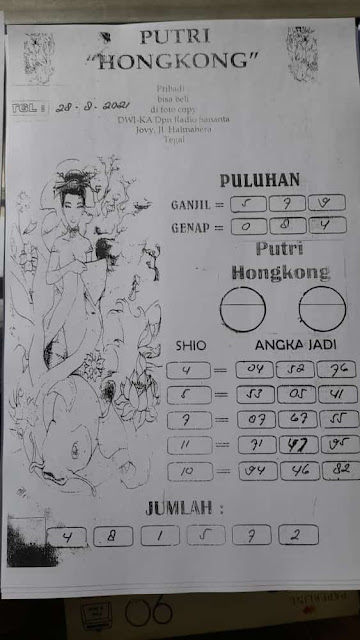 PUTRI
"HONGKONG"
Pribadi
bisa beli
di foto copy
DWI-KA Dpn Radio Sananta
Jovy, Jl Halmahera
Tegal
TGL : 28-8-2021
PULUHAN
GANJIL = 5 7 9
GENAP = 0 8 4
Putri
Hongkong
SHIO ANGKA JADI
4 = 04 52 76
5 = 53 05 41
7 = 07 67 55
11 = 71 47 95
10 = 94 46 82
JUMLAH :
4 8 1 5 7 2